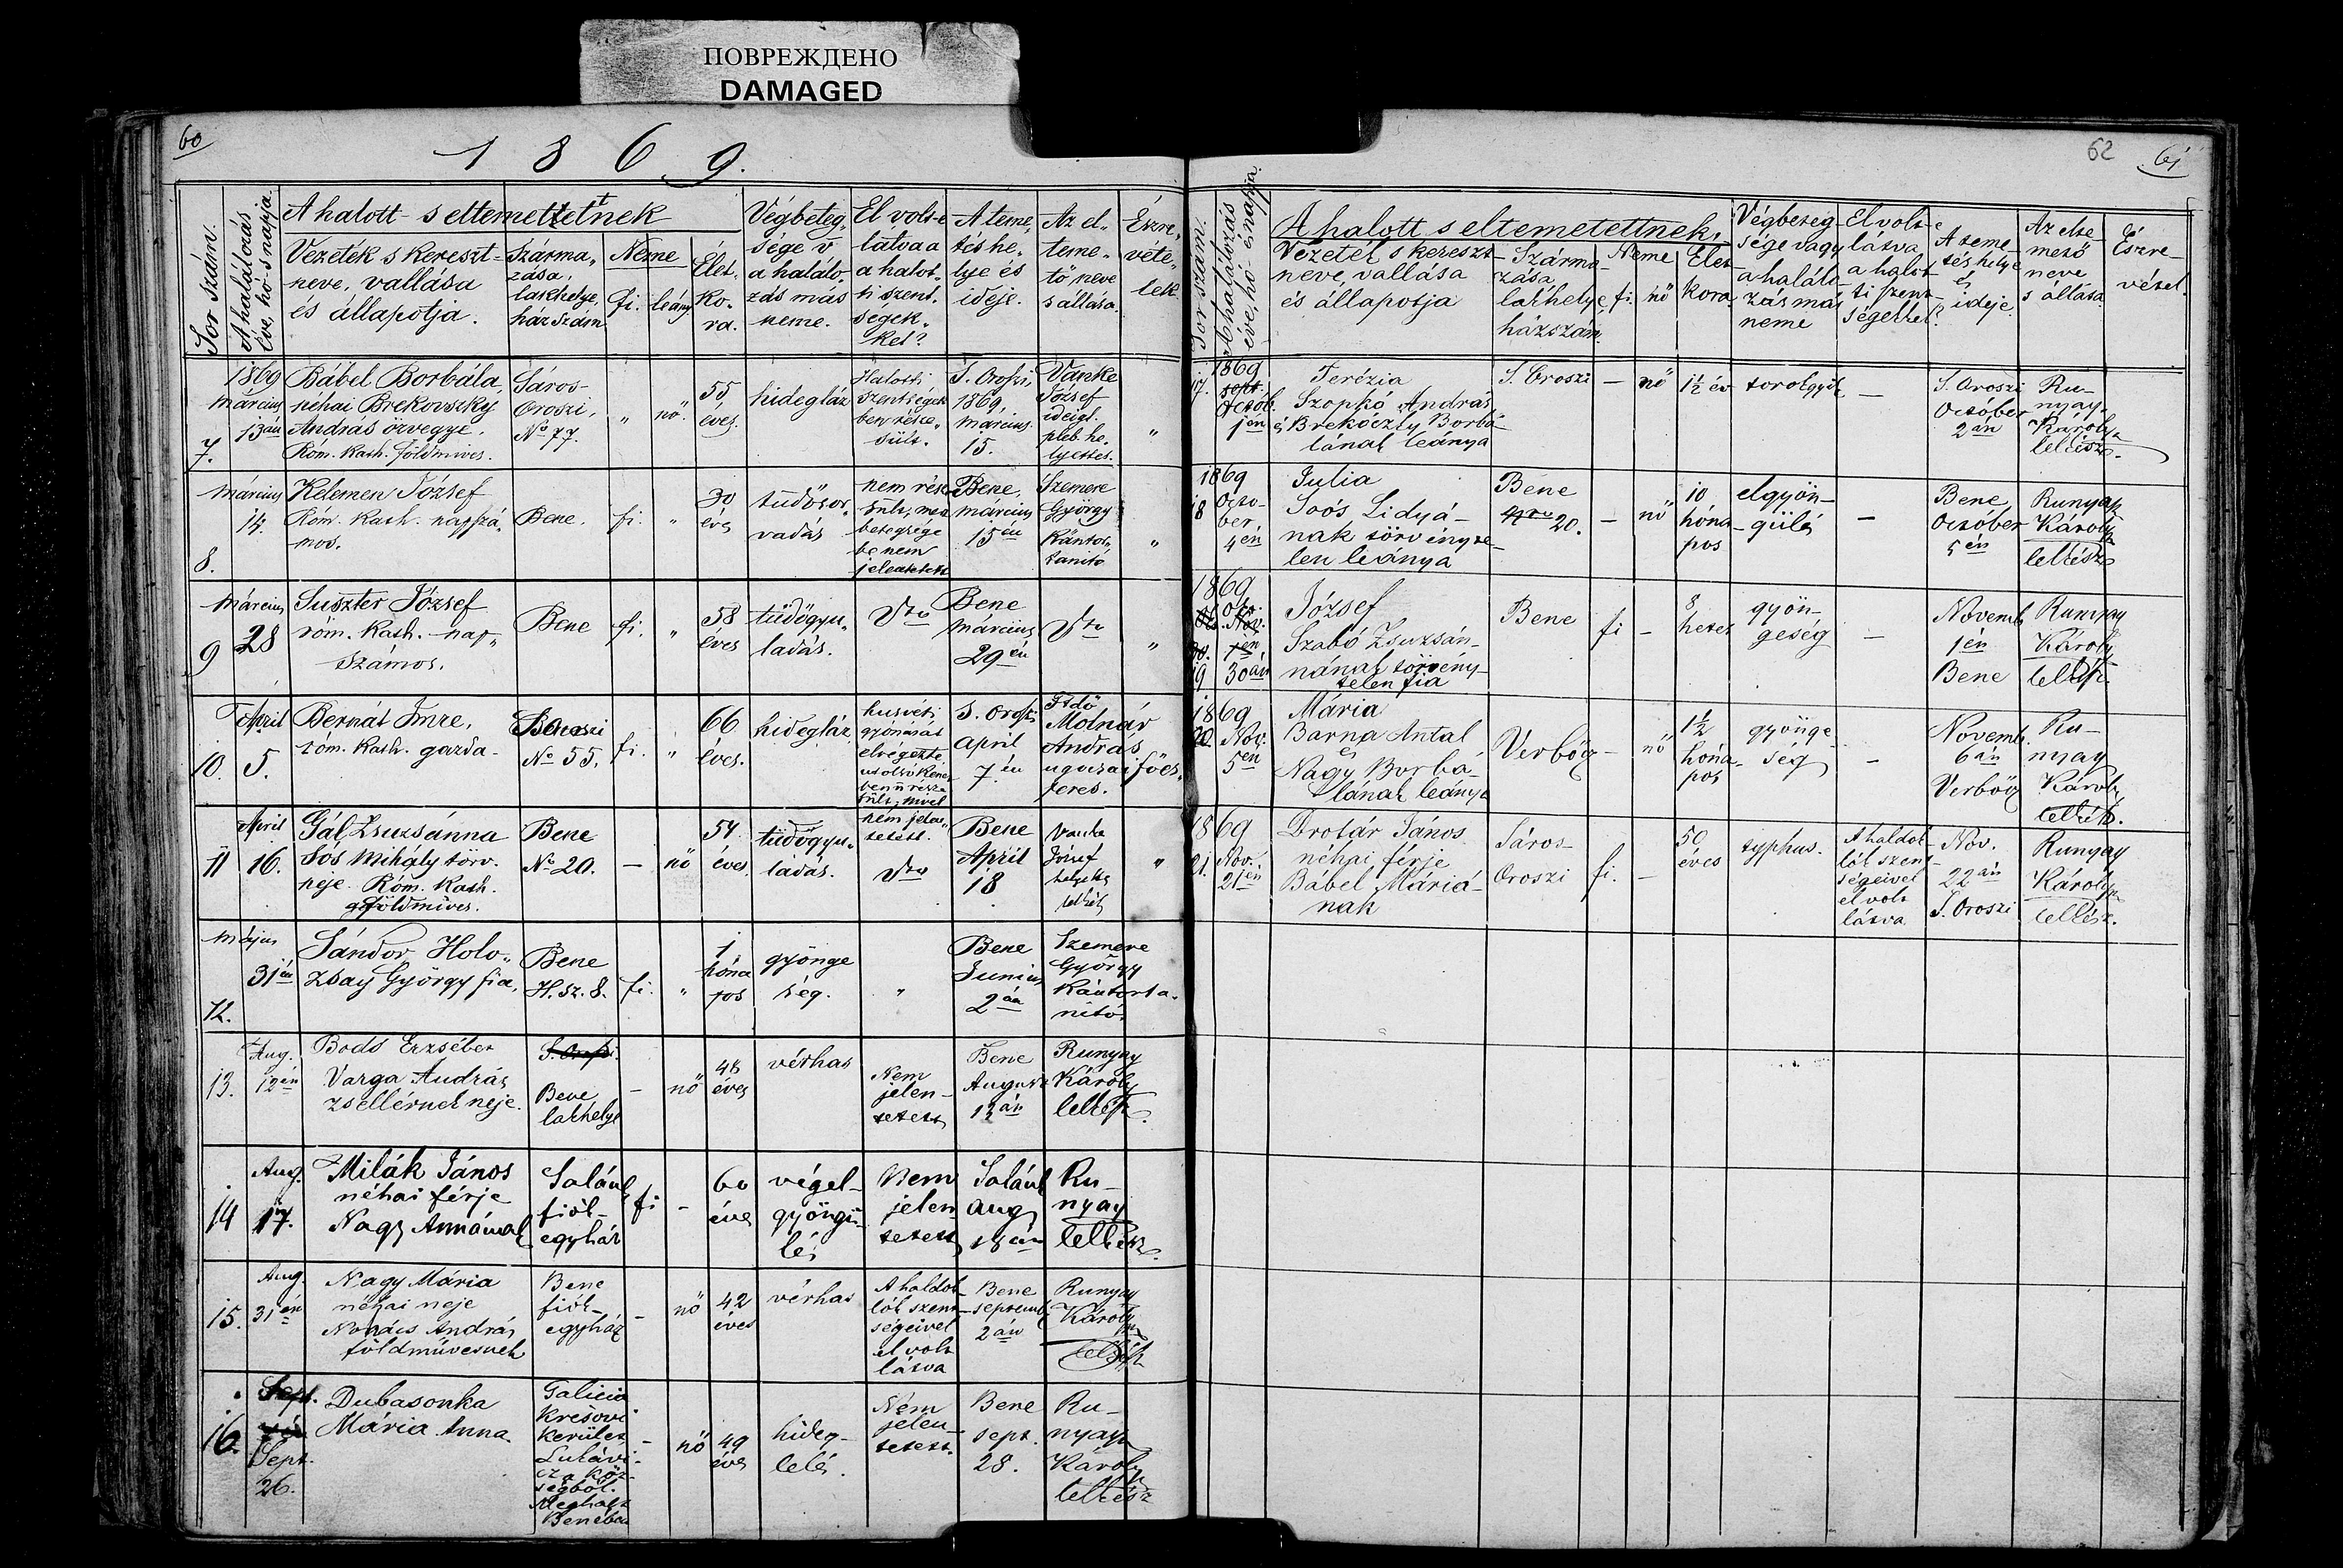 ПОВРЕЖДЕНО
DAMAGED
60
1869.
Sor szám.
A halálozás
éve, hó s napja.
A halott s eltemettetnek
Vezeték s kereszt-
neve, vallása
és állapotja.
Szárma„
zása,
lakhelye,
ház szám
Neme
fi.
leány
Élet„
ko„
ra.
Végbeteg„
sége v
a haláló„
zás más
neme.
El volt-e
látva a
a halot„
ti szent„
ségek„
kel?
A teme„
tés he„
lye és
ideje.
Az el„
teme„
tö neve
s állása.
Észre„
véte„
lek.
7.
1869
március
13án
Bábel Borbála,
néhai Brekovszky
András özvegye.
Róm. kath. földmives.
Sáros-
Oroszi,
No 77.
„
nö.
55
éves.
hidegláz
Halotti
szentségek
ben része„
sült.
S. Oroszi,
1869,
március
15.
Vanke
József
ideigl.
pleb. he„
lyettes.
„
8.
március
14.
Kelemen József
Róm. kath. napszá„
mos.
Bene.
fi.
„
30
éves
tüdösor„
vadás
nem része
sült, mert
betegsége
be nem
jelentetett
Bene,
március
15én
Szemere
György
Kántor„
tanitó
„
9
március
28
Suszter József
róm. kath. nap„
számos.
Bene
fi.
„
58
éves
tüdögyu„
ladás.
Dto
Bene
március
29én
Dto
„
10.
April
5.
Bernát Imre,
róm. kath. gazda
No 55.
fi.
„
66
éves.
hidegláz
husvéti
gyónását
elvégezte
utolsó kenet
ben n része
sült, mivel
nem jelen„
tetett.
S. Oroszi
April
7én
Molnár
András
ugocsai föes„
peres.
11
April
16.
Gál Zsuzsánna
Sós Mihály törv.
neje. Róm. kath.
földmives.
Bene
No 20.
—
nö
54.
éves.
tüdögyu„
ladás.
Dto
Bene
April
18
Vanke
József
helyettes
„
12.
május
31én
Sándor Holo„
zsay György fia,
Bene
H. sz. 8.
fi.
„
1.
hóna
pos
gyönge
ség.
„
Bene
Junius
2án
Szemere
György
Kántorta„
nitó.
13.
Aug.
12én
Bodó Erzsébet
Varga András
zsellérnek neje.
S. Oroszi.
Bene
lakhelye
—
nö
48
éves
vérhas
Nem
jelen-
tetett
Bene
August
13án
Runyay
Károly
lelkész.
14
Aug.
17.
Milák János
néhai férje
Nagy Annának
Salánk
fiók-
egyház
fi
—
60
éves
végel-
gyöngü-
lés
Nem
jelen
tetett
Salánk
aug
18án
Ru-
nyay
lelkész.
15.
Aug.
31én
Nagy Mária
néhai neje
Kovács András
földmüvesnek
Bene
fiók-
egyház
—
nö
42
éves
vérhas
A haldok-
lók szent-
ségeivel
el volt
látva
Bene
septemb.
2án
Runyay
Károly
lelkész
16.
Sept.
Sept.
26.
Dubasonka
Mária Anna.
Galicia
Kresovi
kerület
köz-
ségböl.
Meghalt
Benében
—
nö
49
éves
hideg-
lelés.
Nem
jelen-
tetett.
Bene
sept.
28.
Ru-
nyay
Károly
lelkész
62
61
Sor szám.
A halálozás
éve, hó- és napja.
A halott s eltemetettnek,
Vezeték s kereszt-
neve, vallása
és állapotja
Szárma-
zása
lakhelye,
házszám.
Neme
fi.
nö
Élet
kora
Végbeteg-
sége vagy
a haláló-
zás más
neme
El volt-e
látva
a halot-
ti szent-
ségekkel?
A teme-
tés helye
és
ideje.
Az elte-
metö
neve
s állása
Észre-
vétel.
17.
1869
sept.
Octób.
1én
Terézia
Szopkó András
és Brekóczky Borbá-
lának leánya
S. Oroszi
—
nö
1 1/2 év
torokgyík
—
S. Oroszi
Octóber
2án
Ru-
nyay
Károly
lelkész.
18
1869
Octo-
ber
4én
Julia
Soós Lidyá-
nak törvényte-
len leánya
Bene
Nro 20.
—
nö
10
hóna-
pos
elgyön-
gülés
—
Bene
October
5én
Runyay
Károly
lelkész
19
1869
Oct.
Nov.
1én
30án
József
Szabó Zsuzsán-
nának törvény-
telen fia
Bene
fi
—
8
hetes
gyön-
geség
—
Novemb.
1én
Bene
Runyay
Károly
lelkész.
20.
1869
Nov.
5én
Mária
Barna Antal
és
Nagy Borbá-
lának leánya
Verböcz
—
nö
1 1/2
hóna-
pos
gyönge
ség
—
Novemb.
6án
Verböcz
Ru-
nyay
Károly
lelkész.
21.
1869
Nov.
21én
Drotár János
néhai férje
Bábel Máriá-
nak
Sáros-
Oroszi
fi.
—
50
éves
typhus.
A haldok-
lók szent-
ségeivel
el volt
látva
Nov.
22án
S. Oroszi
Runyay
Károly
lelkész.